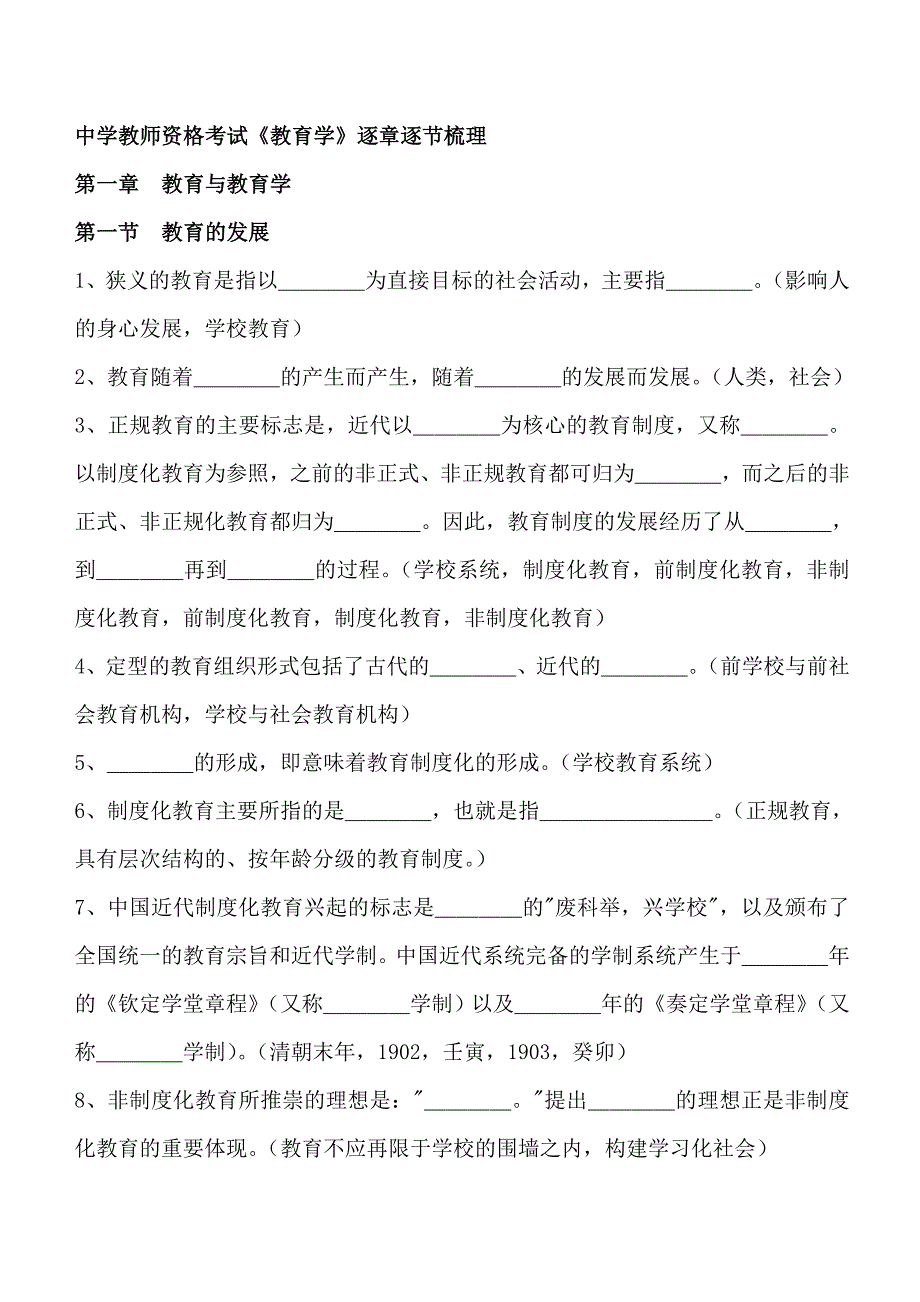 中学教师资格考试《教育学》逐章逐节梳理
第一章　教育与教育学
第一节　教育的发展
1、狭义的教育是指以________为直接目标的社会活动，主要指________。（影响人
的身心发展，学校教育）
2、教育随着________的产生而产生，随着________的发展而发展。（人类，社会）
3、正规教育的主要标志是，近代以________为核心的教育制度，又称________。
以制度化教育为参照，之前的非正式、非正规教育都可归为________，而之后的非
正式、非正规化教育都归为________。因此，教育制度的发展经历了从________，
到________再到________的过程。（学校系统，制度化教育，前制度化教育，非制
度化教育，前制度化教育，制度化教育，非制度化教育）
4、定型的教育组织形式包括了古代的________、近代的________。（前学校与前社
会教育机构，学校与社会教育机构）
5、________的形成，即意味着教育制度化的形成。（学校教育系统）
6、制度化教育主要所指的是________，也就是指________________。（正规教育，
具有层次结构的、按年龄分级的教育制度。）
7、中国近代制度化教育兴起的标志是________的"废科举，兴学校"，以及颁布了
全国统一的教育宗旨和近代学制。中国近代系统完备的学制系统产生于________年
的《钦定学堂章程》（又称________学制）以及________年的《奏定学堂章程》（又
称________学制）。（清朝末年，1902，壬寅，1903，癸卯）
8、非制度化教育所推崇的理想是："________。"提出________的理想正是非制度
化教育的重要体现。（教育不应再限于学校的围墙之内，构建学习化社会）